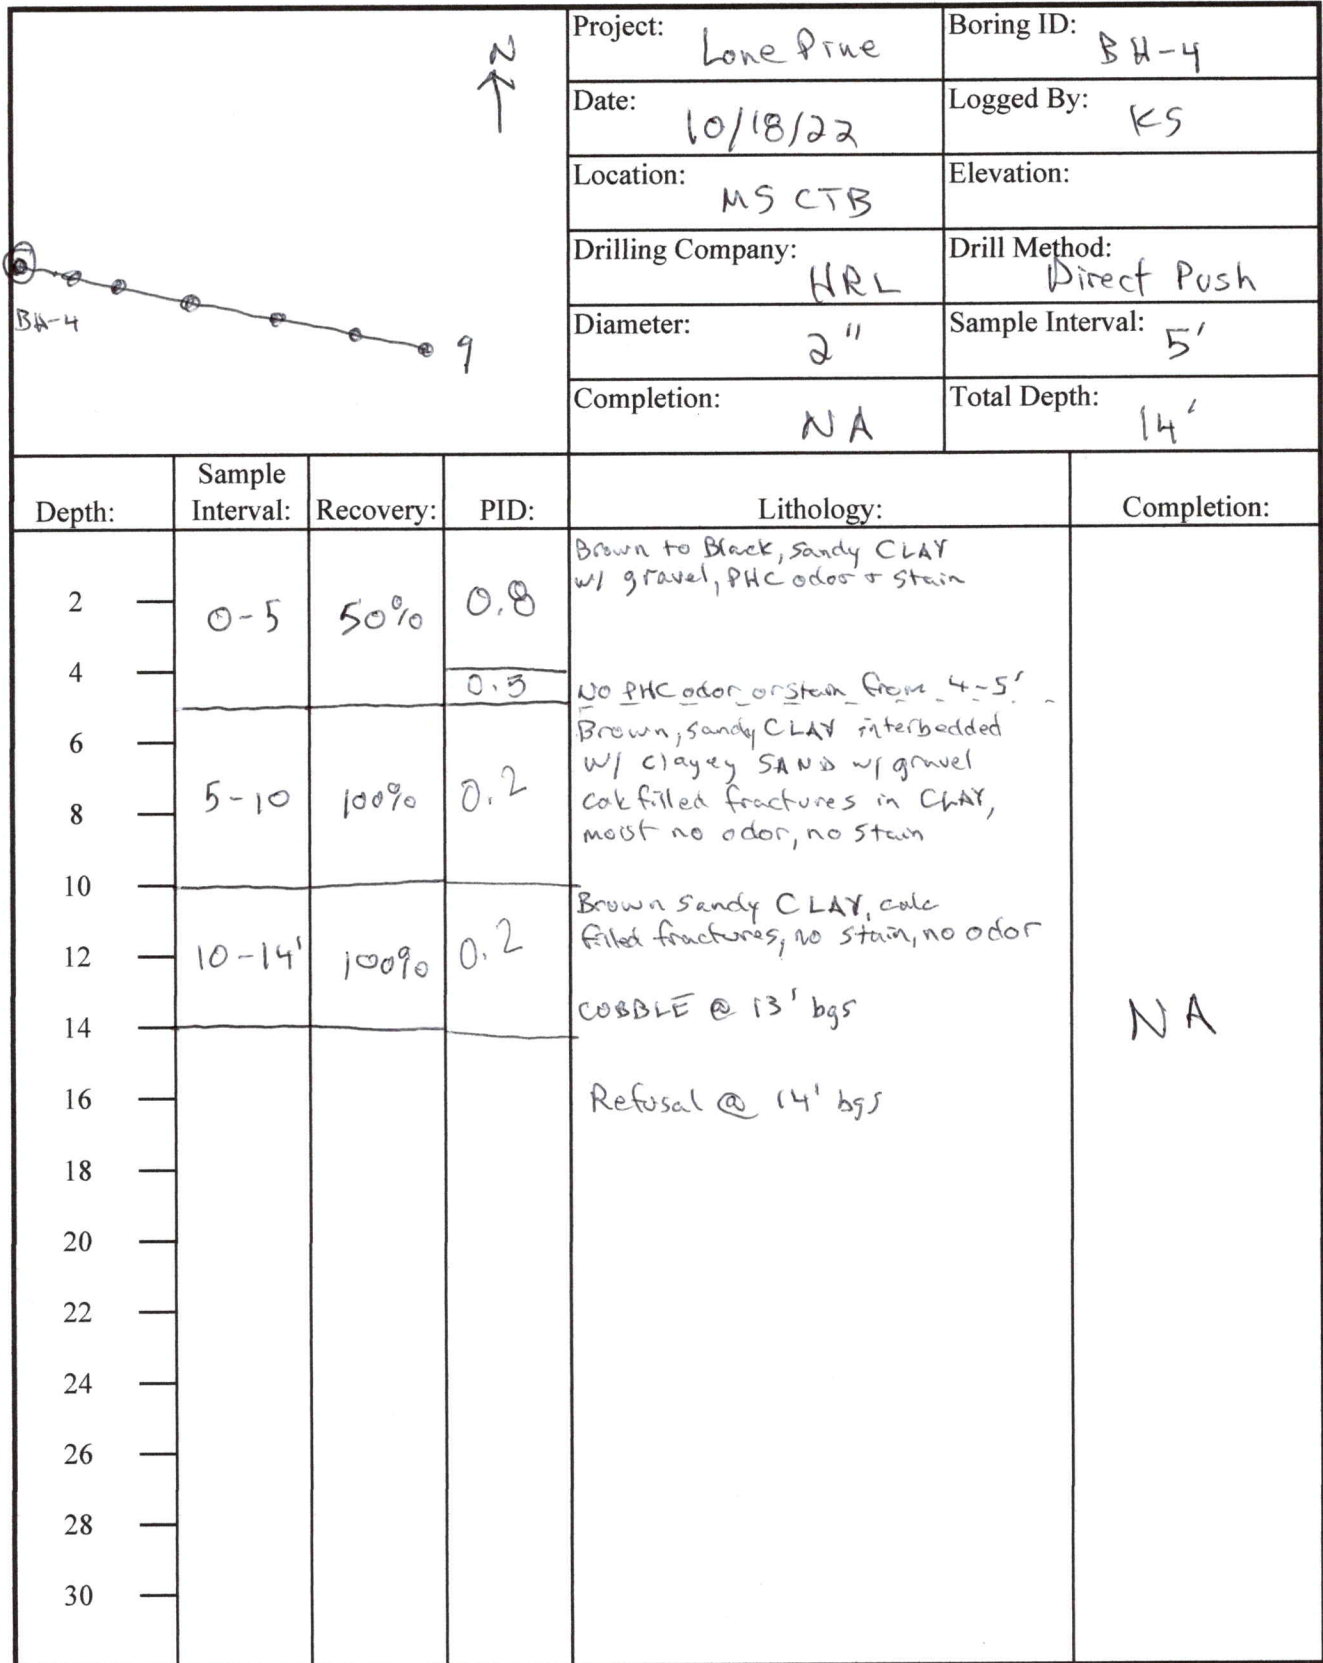 N
BH-4
9
Project: Lone Pine
Boring ID: BH-4
Date: 10/18/22
Logged By: KS
Location: MS CTB
Elevation:
Drilling Company: HRL
Drill Method: Direct Push
Diameter: 2"
Sample Interval: 5'
Completion: NA
Total Depth: 14'
Depth:
Sample
Interval:
Recovery:
PID:
Lithology:
Completion:
Brown to Black, Sandy CLAY
w/ gravel, PHC odor + stain
2
0-5 50% 0.8
4
0.5 No PHC odor or stain from 4-5'
Brown, sandy CLAY interbedded
6
w/ clayey SAND w/ gravel
5-10 100% 0.2
calc filled fractures in CLAY,
8
moist no odor, no stain
10
Brown Sandy CLAY, calc
filled fractures, no stain, no odor
12
10-14' 100% 0.2
COBBLE @ 13' bgs
14
NA
16
Refusal @ 14' bgs
18
20
22
24
26
28
30